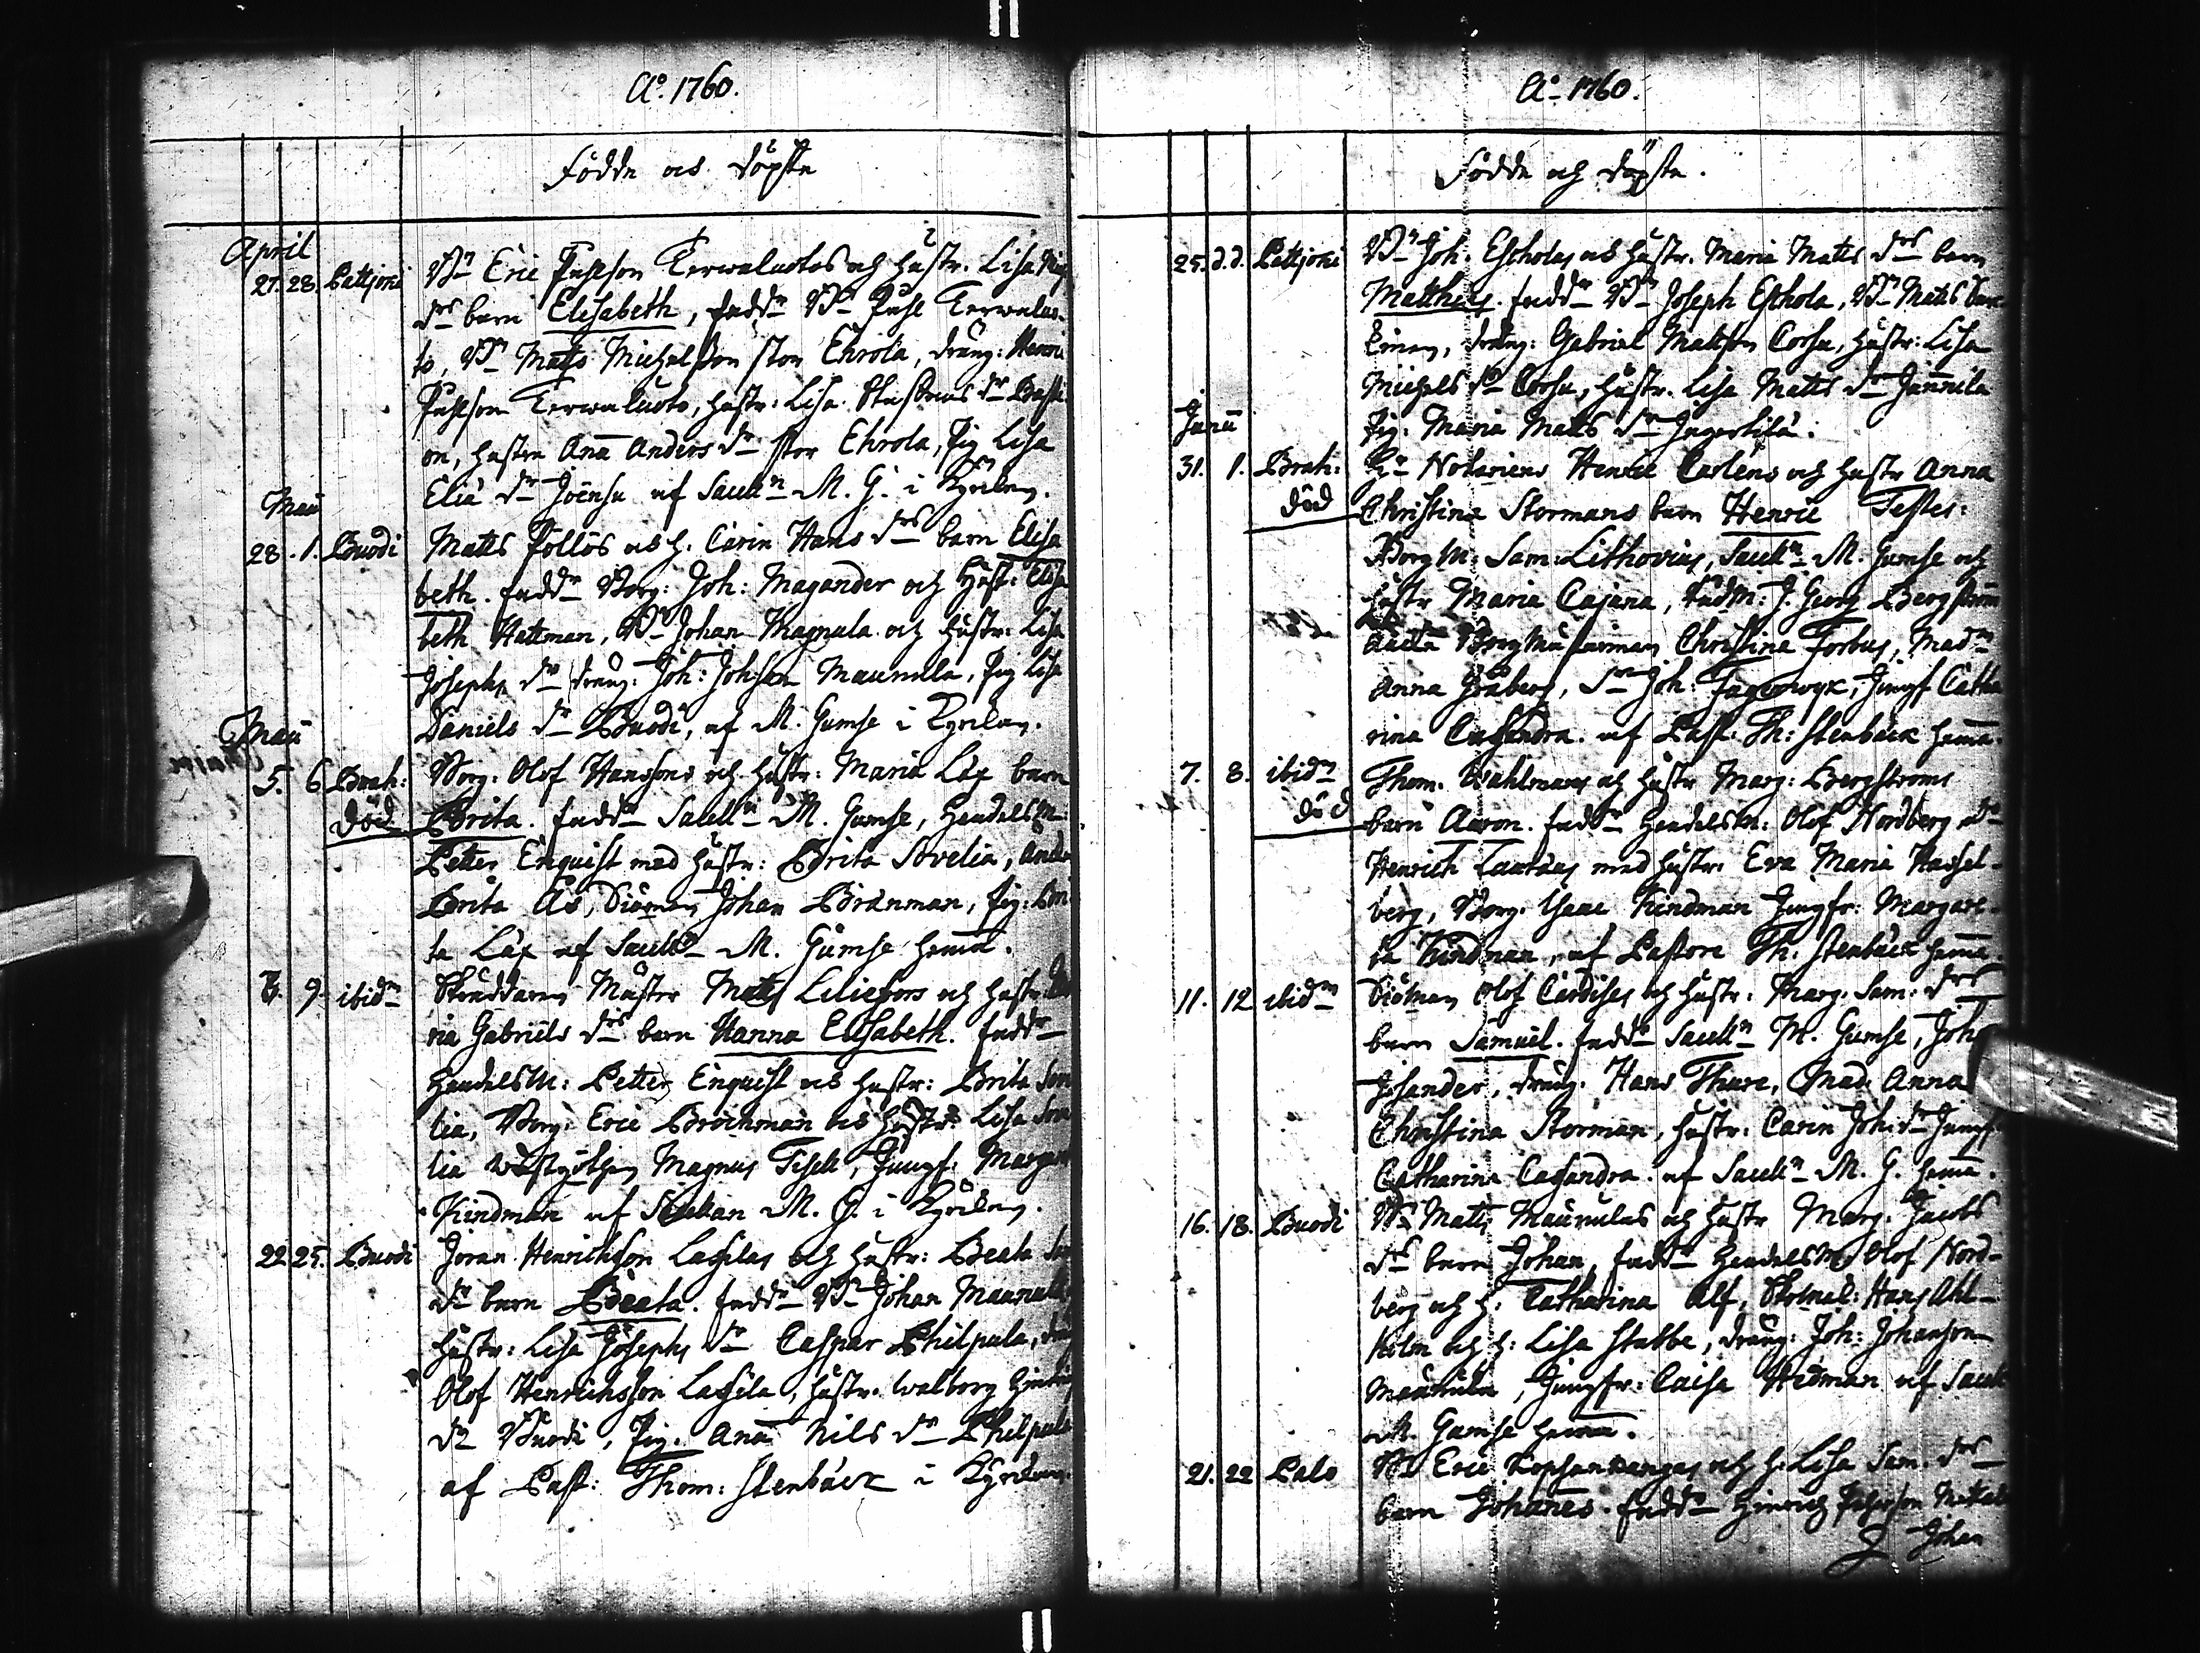 Ao. 1760.
Födde och döpte
April
27. 28. Pattjoki Bn Eric Påhlson Terwaluotos och hustr. Lisa
drs barn Elisabeth, faddr Bn Påhl Terwaluo-
to, Bn Matts Michelsson stor Ehrola, dräng: Henric
Påhlson Terwaluoto, hustr: Lisa dr
on, hustru Ana Anders dr stor Ehrola, Pig Lisa
Elia dr Joensu af Sacelln M. G. i Kyrckan.
Maii
28. 1. Buodi Matts Pollos och h. Carin Hans drs barn Elisa
beth. faddr Borg: Joh: Magander och Hust: Elisa
beth Hattman, Bn Johan Magnula och hustr: Lisa
Josephs dr dräng: Joh: Johsson Maunula, Pig Lisa
Daniels dr Buodi, af M. Gumse i Kyrckan.
Maii
5. 6. Brah: Borg: Olof Hanssons och hustr: Maria Lax barn
död Brita. faddr Sacelln M. Gumse, Handelsm:
Petter Enquist med hustr: Brita Sovelia, Ank
Brita Ås, Siöman Johan Brånman, Pig: Bri
ta Lax af Sacelln M. Gumse hema.
8. 9. ibidm Skräddaren Mäster Matts Liliefors och hustr. Ma
ria Gabriels drs barn Hanna Elisabeth. faddr
Handelsm: Petter Enquist och hustr: Brita Sov
lia, Borg: Eric Brockman och hustr: Lisa Sov
lia Magnus Tisell, Jungf. Margar
Kindman af Sacellan M. G. i Kyrckan.
22 25. Buodi Joran Henrichsson Lassilas och hustr: Beata
dr barn Beata. faddr Bn Johan Maunula
hustr: Lisa Josephs dr Caspar Philpula,
Olof Henrichsson Lassila, hustr. Walborg Hinric
dr Buodi, Pig. Ana Nils dr Philpula
af Past: Thom: Stenbäck i Kyrckan.
Ao. 1760.
Födde och döpte.
25. d.d. Pattjoki Bn Joh. Eskolas och hustr. Maria Matts drs barn
Matthias. faddr Bn Joseph Eskola, Bn Matts
dräng: Gabriel Mattson Corsu, hustr: Lisa
Michels dr Corsu, hustr. Lisa Matts dr Junnila
Pig. Maria Matts dr
Junii
31. 1. Brah: Hr Notarien Henric Carlens och hustr Anna
död Christina Stormans barn Henric Testes:
BorgM: Sam. Lithovius, Sacelln M. Gumse och
hustr Maria Cajana, RådM: J. Georg Bergström
Borgmästarinnan Christina Forbus, Madm
Anna Gråberg, Sr Joh: Fagerwyk, Jungf Catha
rina Casandra. af Past. Th: Stenbäck hema.
7. 8. ibidm Thom. Wahlmans och hustr Marg: Bergstroms
död barn Aaron. faddr Handelsm: Olof Nordberg, Do
Henrich med hustr: Eva Maria Hassel-
berg, Borg: Isaac Kindman Jungfr: Margare-
ta Kindman, af Pastore Th. Stenbäck hema
11. 12 ibidm Siöman Olof och hustr: Marg. Sam: drs
barn Samuel. faddr Sacelln M. Gumse, Joh
Josander, dräng. Hans Thure, Mad: Anna
Christina Storman, hustr: Carin Joh: dr Jungf
Catharina Casandra. af Sacelln M. G. hema.
16. 18. Buodi Bn Matts Maunulas och hustr Marg. Jacobs
drs barn Johan, faddr Handelsm Olof Nord-
berg och h: Catharina Alf, Skomak: Hans Ahl-
holm och h: Lisa Stabbe, dräng: Joh: Johanson
Maunula, Jungfr: Caisa Hedman af Sacell
M. Gumse hema.
21. 22 Palo Bn Eric och h. Lisa Sam. drs
barn Johanes. faddr Hinrich Påhlson
Johan